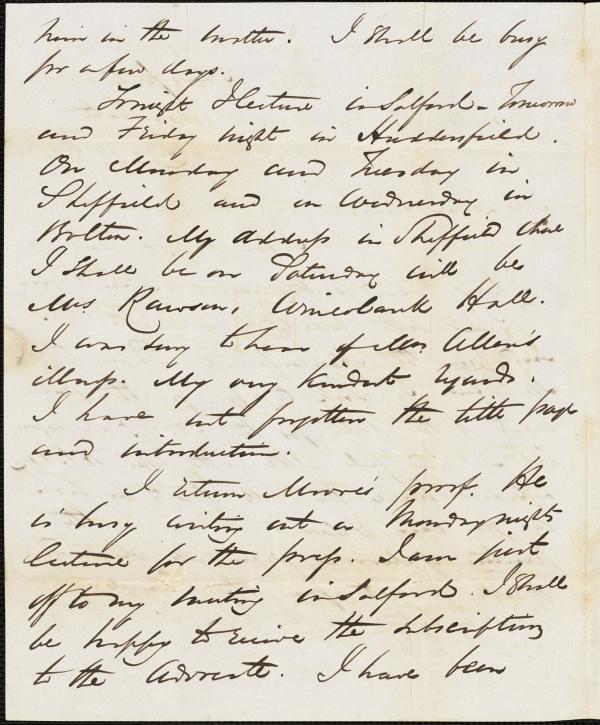 him in the matter. I shall be busy
for a few days.
Tonight I lecture in Salford - Tomorrow
and Friday night in Huddersfield.
On Monday and Tuesday in
Sheffield and on Wednesday in
Bolton. My address in Sheffield where
I shall be on Saturday will be
Mrs Rawson, Wincobank Hall.
I was sorry to hear of Mrs Allen's
illness. My very kindest regards.
I have not forgotten the title page
and introduction.
I return Moore's proof. He
is busy writing out a Monday night's
lecture for the press. I am just
off to my meeting in Salford. I shall
be happy to receive the subscriptions
to the Advocate. I have been